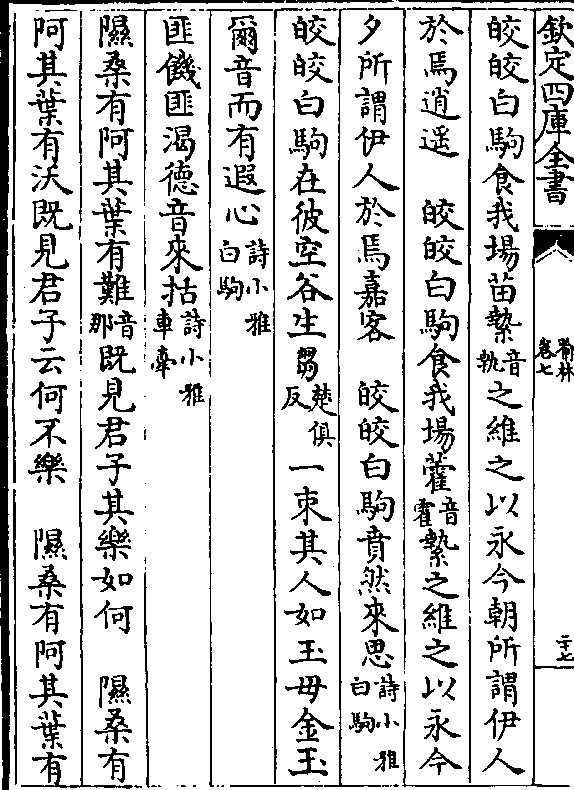 欽定四庫全書
喻林
卷七
二十七
皎皎白駒食我場苗縶音執之維之以永今朝所謂伊人
於焉逍遥　皎皎白駒食我場藿音霍縶之維之以永今
夕所謂伊人於焉嘉客　皎皎白駒賁然來思詩小雅白駒
皎皎白駒在彼空谷生芻楚俱反一束其人如玉毋金玉
爾音而有遐心詩小雅白駒
匪饑匪渴德音來括詩小雅車舝
隰桑有阿其葉有難音那既見君子其樂如何　隰桑有
阿其葉有沃既見君子云何不樂　隰桑有阿其葉有